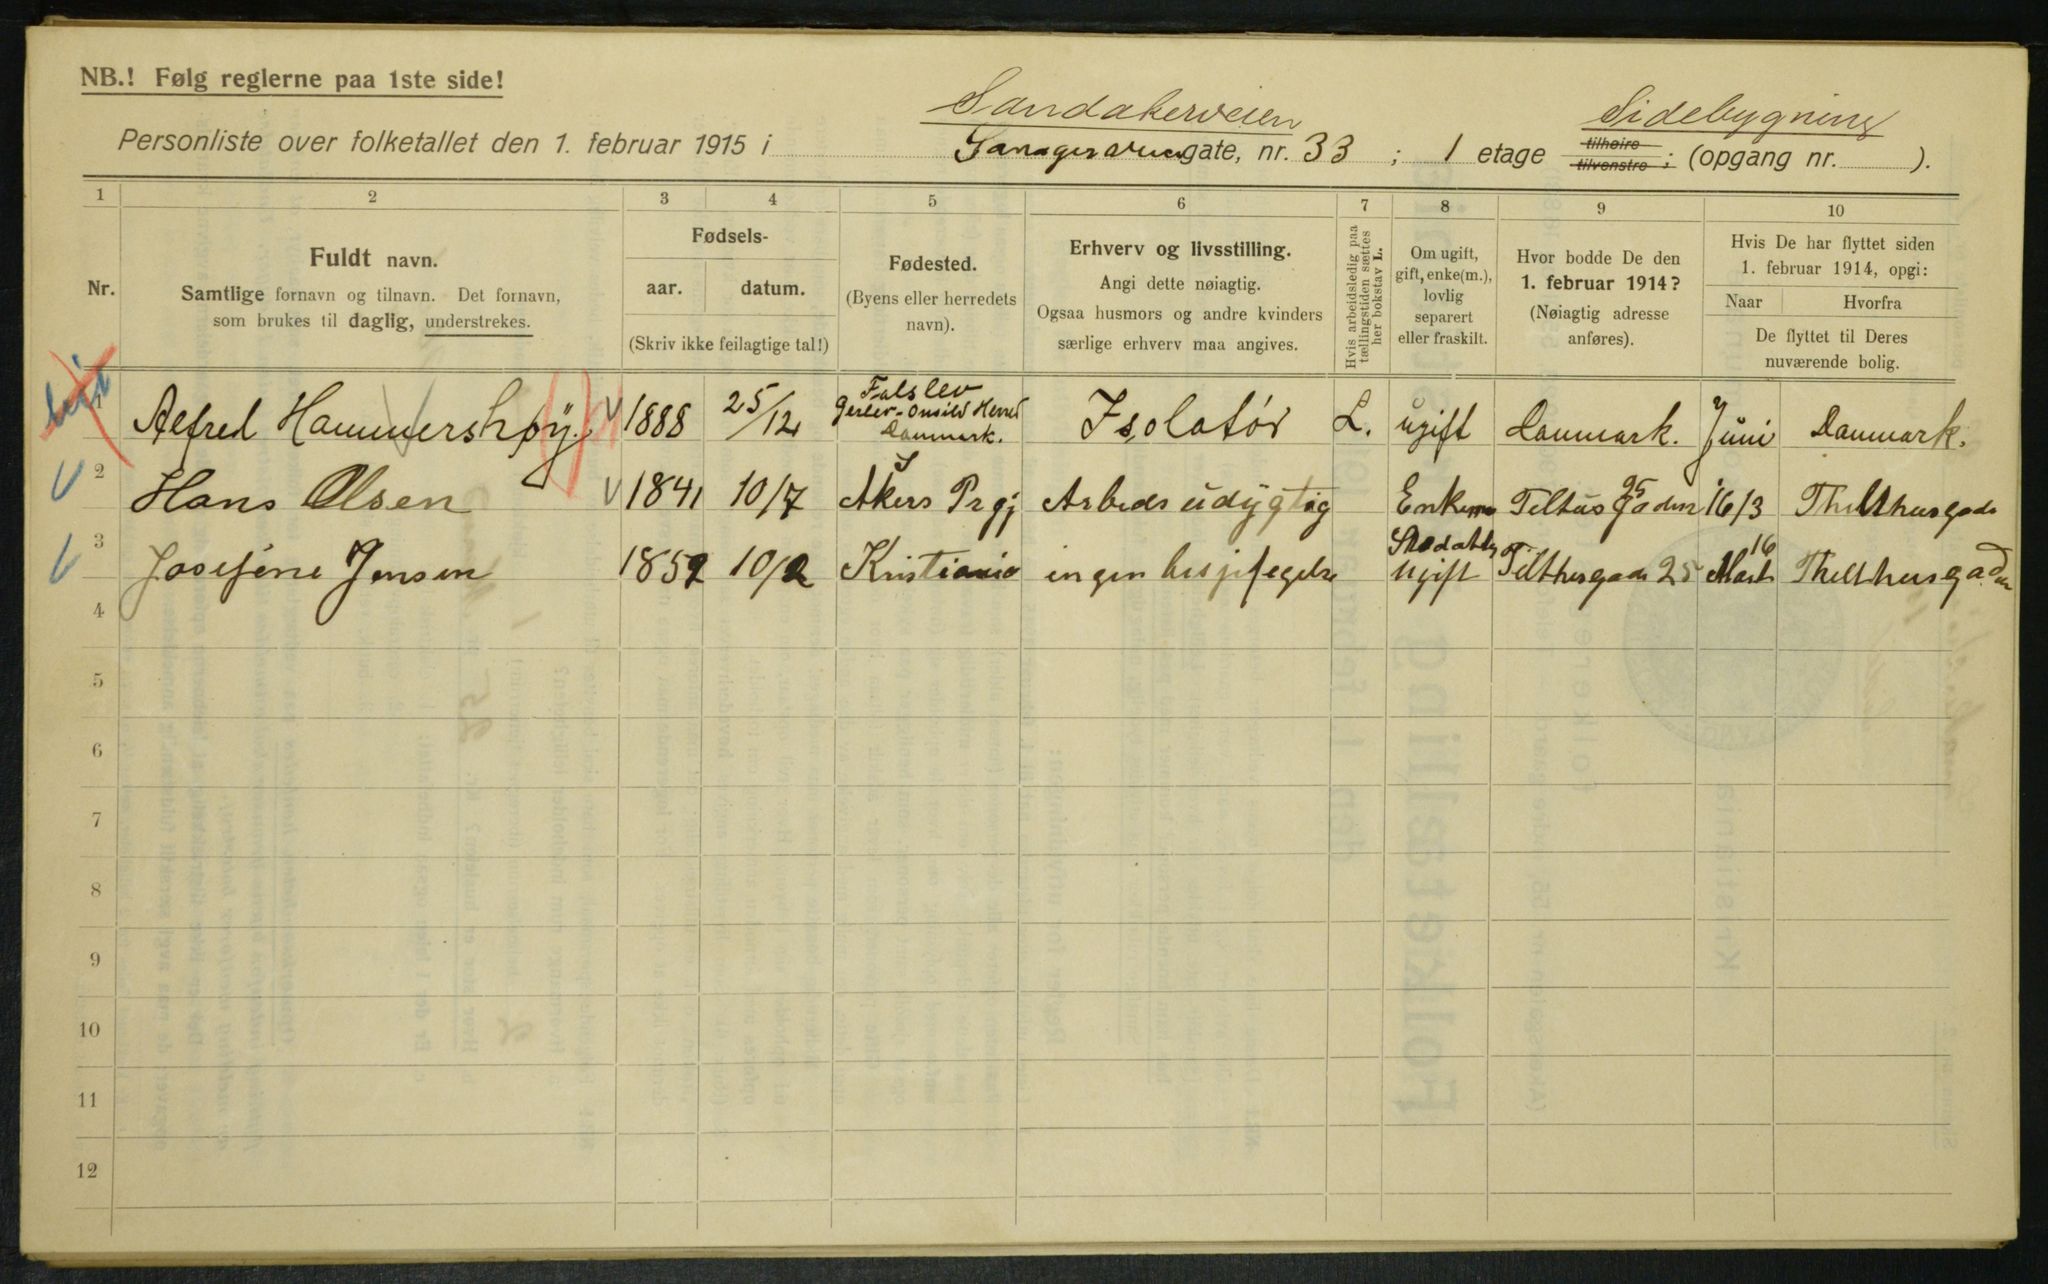 NB.! Følg reglerne paa 1ste side!
Sandakerveien
Sidebygning
Personliste over folketallet den 1. februar 1915 i gate, nr. 33 ; 1 etage tilhøire tilvenstre ; (opgang nr. ).
1 2 3 4 5 6 7 8 9 10
Nr.
Fuldt navn.
Samtlige fornavn og tilnavn. Det fornavn,
som brukes til daglig, understrekes.
Fødsels-
aar. datum.
(Skriv ikke feilagtige tal!)
Fødested.
(Byens eller herredets
navn).
Erhverv og livsstilling.
Angi dette nøiagtig.
Ogsaa husmors og andre kvinders
særlige erhverv maa angives.
Hvis arbeidsledig paa
tællingstiden sættes
her bokstav L.
Om ugift,
gift, enke(m.),
lovlig
separert
eller fraskilt.
Hvor bodde De den
1. februar 1914?
(Nøiagtig adresse
anføres).
Hvis De har flyttet siden
1. februar 1914, opgi:
Naar Hvorfra
De flyttet til Deres
nuværende bolig.
1 Alfred Hammershøy. 1888 25/12 Falslev Gerlev-Onsild Herred Danmark. Isolatør L. ugift Danmark. Juni Danmark.
2 Hans Olsen 1841 10/7 Akers Prgj Arbeds udygtig Enkem Teltusgaden 25 16/3 Thelthusgade
3 Josefine Jensen 1852 10/2 Kristiania ingen besjefegelse ugift Telthusgade 25 16 Marts Thelthusgaden
4
5
6
7
8
9
10
11
12